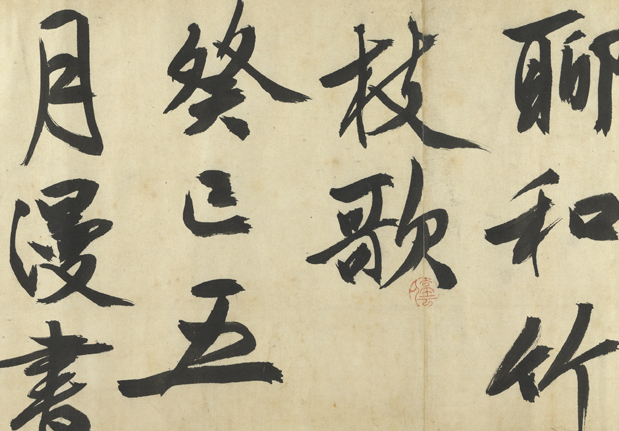 聊和竹
枝歌
癸已五
月漫書